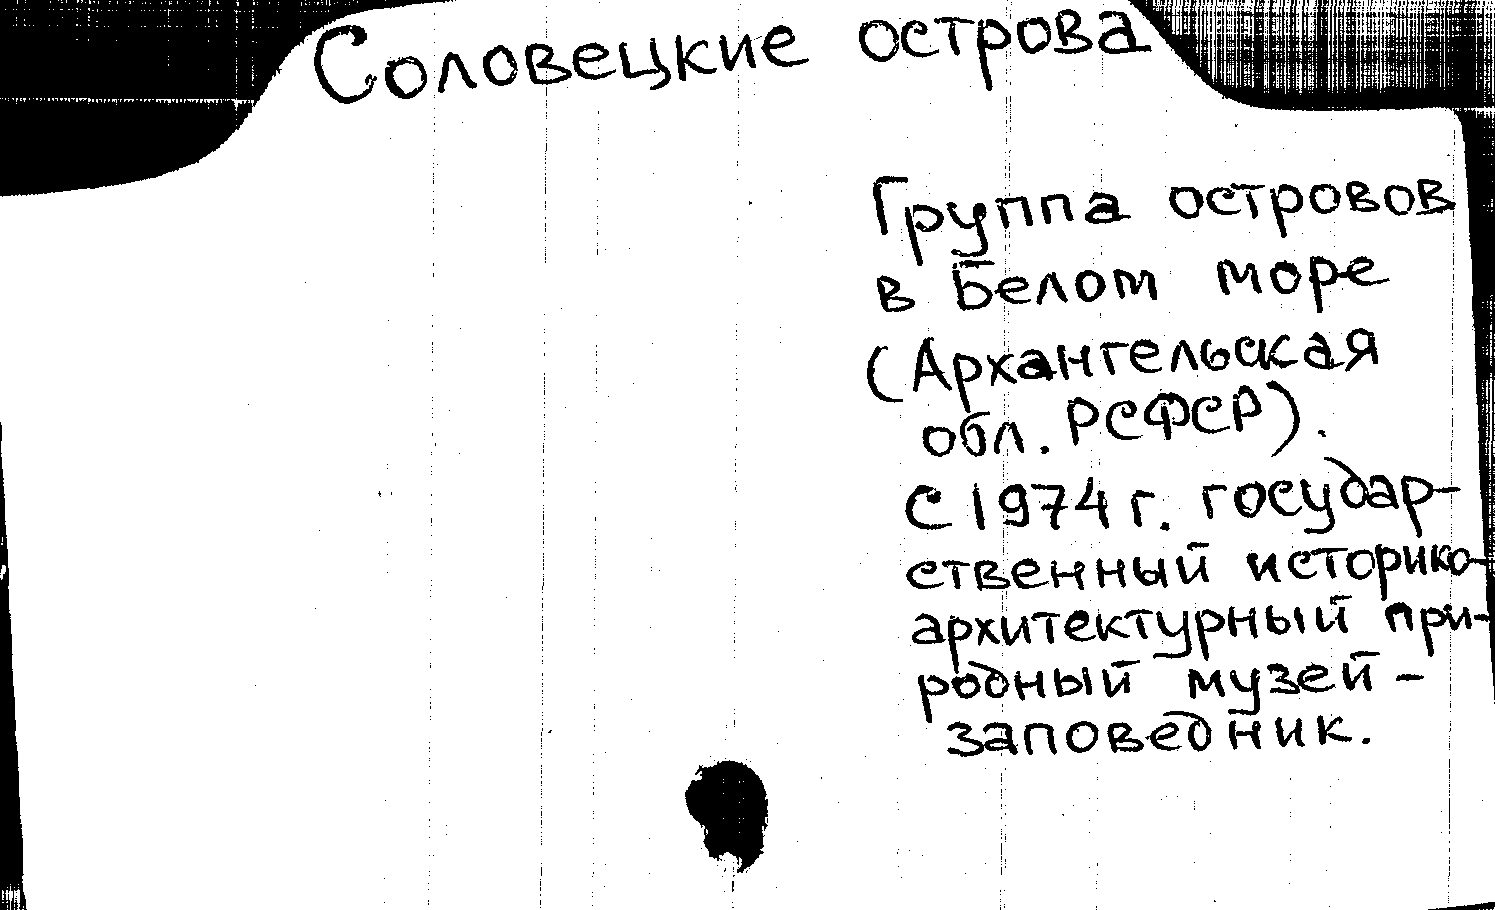 Соловецкие острова
Группа островов
в Белом море
(Архангельская
обл. РСФСР).
С 1974 г. государ-
ственный историко-
архитектурный при-
родный музей-
заповедник.